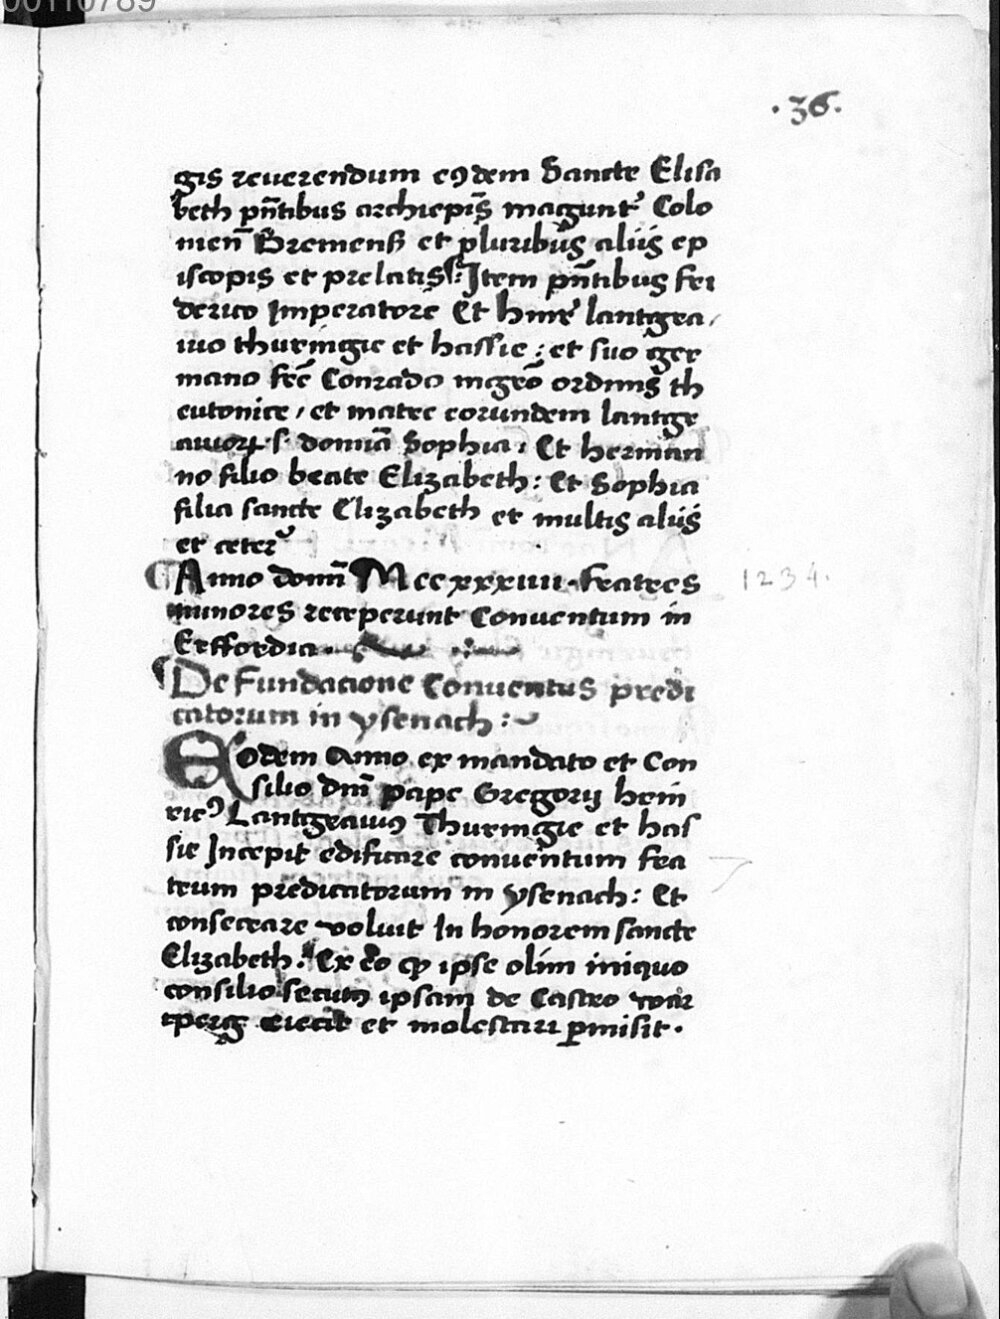 00110789
.36.
gis reuerendum eꝯdem Sancte Elisa
beth pn̄tibus archiepis̄ magunt̾ Colo
nien̄ Bremenß et pluribus aliis ep
iscopis et prelatis: Item pn̄tibus fri
derico Imperatore Et hinr̾ lantgra
uio thuringie et hassie : et suo ger
mano fr̄e Conrado mgr̄o ordinis th
eutonice / et matre eorundem lantgr
auioꝝ .s. domīa Sophia. Et herman
no filio beate Elizabeth : Et Sophia
filia sancte Elizabeth et multis aliis
et ceter̾
Anno domī M ccxxxiiii. fratres
minores receperunt Conuentum in
Erffordia.
1234.
De Fundacione Conuentus predi
catorum in ysenach :~
Eodem Anno ex mandato et Con
silio dn̄i pape Gregorii hein
ricꝰ Lantgrauiꝰ Thuringie et has
sie Incepit edificare conuentum fra
trum predicatorum in ysenach : Et
consecrare voluit In honorem sancte
Elizabeth. Ex eo ꝙ ipse olim iniquo
consilio secutꝰ ipsam de Castro war
tperg eiecit et molestari ꝑmisit.